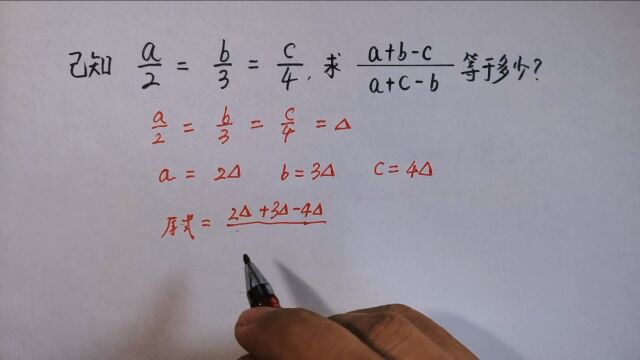 已知 a/2 = b/3 = c/4, 求 (a+b-c)/(a+c-b) 等于多少?
a/2 = b/3 = c/4 = Δ
a = 2Δ b = 3Δ c = 4Δ
原式 = 2Δ+3Δ-4Δ